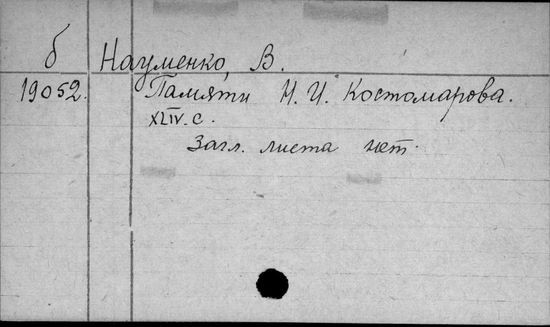 б Науменко, В.
19052. Памяти Н. И. Костомарова.
XLIV. с.
Загл. листа нет.